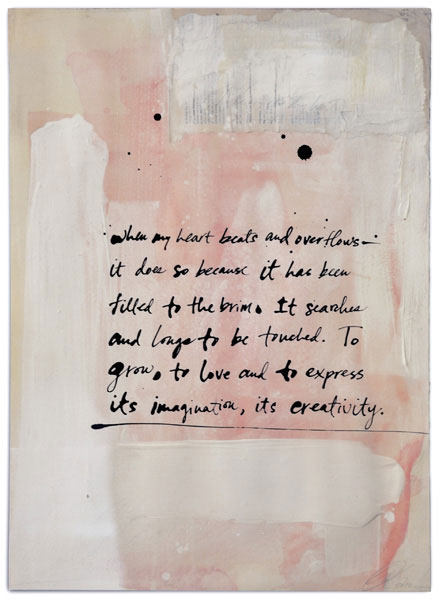 when my heart beats and overflows—
it does so because it has been
filled to the brim. It searches
and longs to be touched. To
grow, to love and to express
its imagination, its creativity.